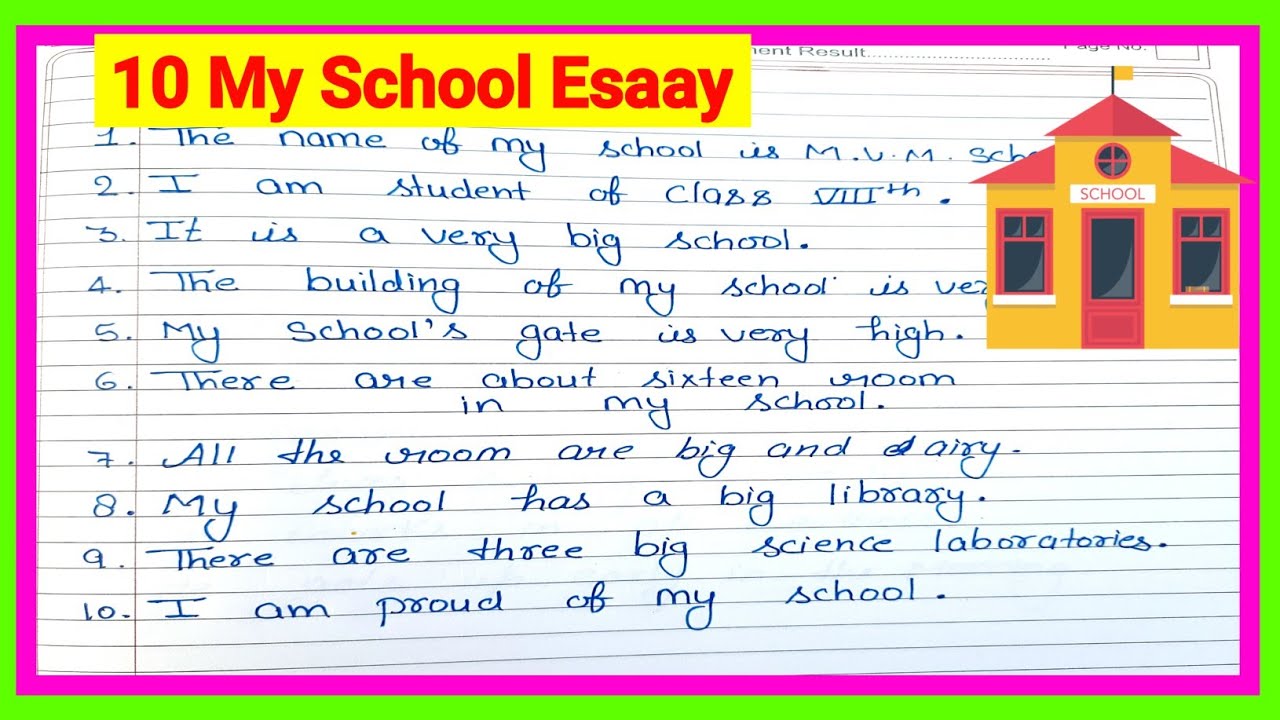 Result
Page No.
10 My School Esaay
1. The name of my school is M.V.M.
2. I am student of class VIIIth.
SCHOOL
3. It is a very big school.
4. The building of my school is
5. My School's gate is very high.
6. There are about sixteen room
in my school.
7. All the room are big and airy.
8. My school has a big library.
9. There are three big science laboratories.
10. I am proud of my school.